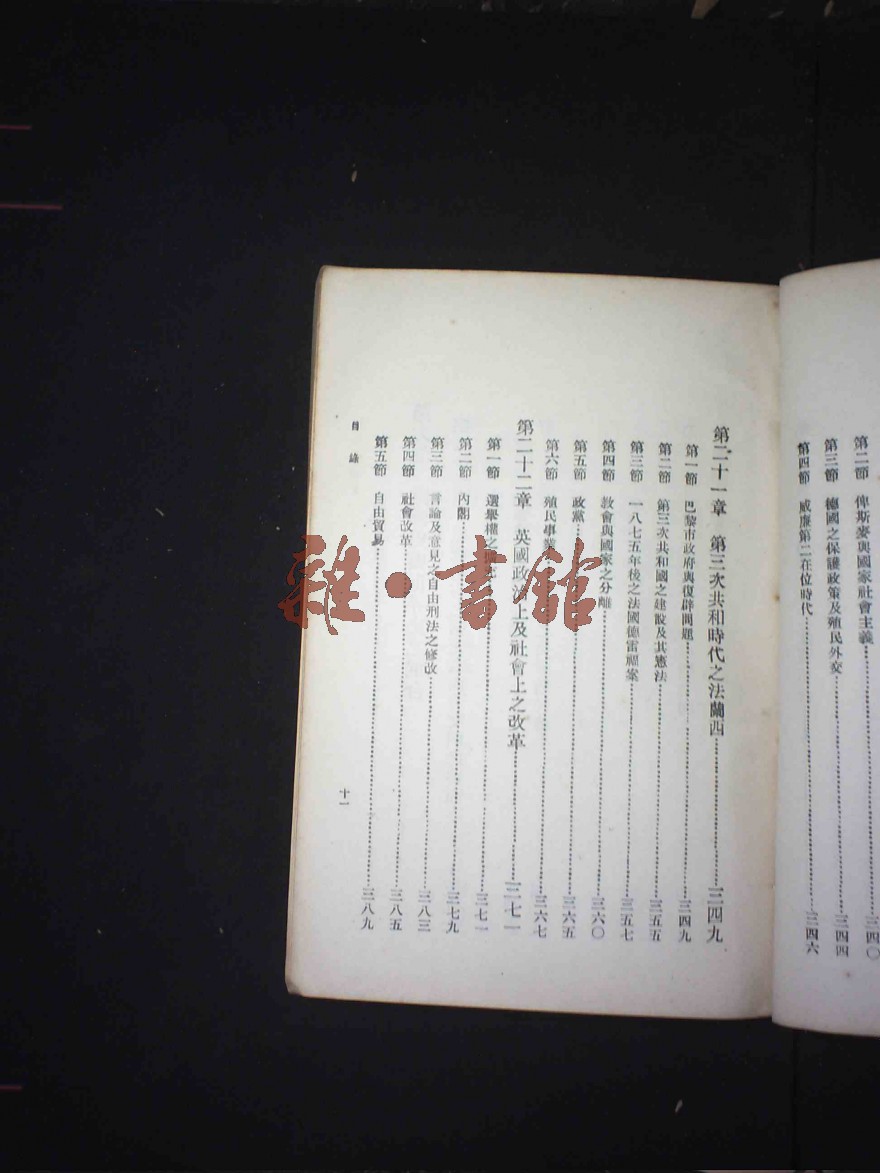 第二節　俾斯麥與國家社會主義……三四〇
第三節　德國之保護政策及殖民外交……三四四
第四節　威廉第二在位時代……三四六
第二十一章　第三次共和時代之法蘭西……三四九
第一節　巴黎市政府與復辟問題……三四九
第二節　第三次共和國之建設及其憲法……三五五
第三節　一八七五年後之法國德雷福案……三五七
第四節　教會與國家之分離……三六〇
第五節　政黨……三六五
第六節　殖民事業……三六七
第二十二章　英國政治上及社會上之改革……三七一
第一節　選舉權之……三七一
第二節　內閣……三七九
第三節　言論及意見之自由刑法之修改……三八三
第四節　社會改革……三八五
第五節　自由貿易……三八九
目錄
十一
雜·書館